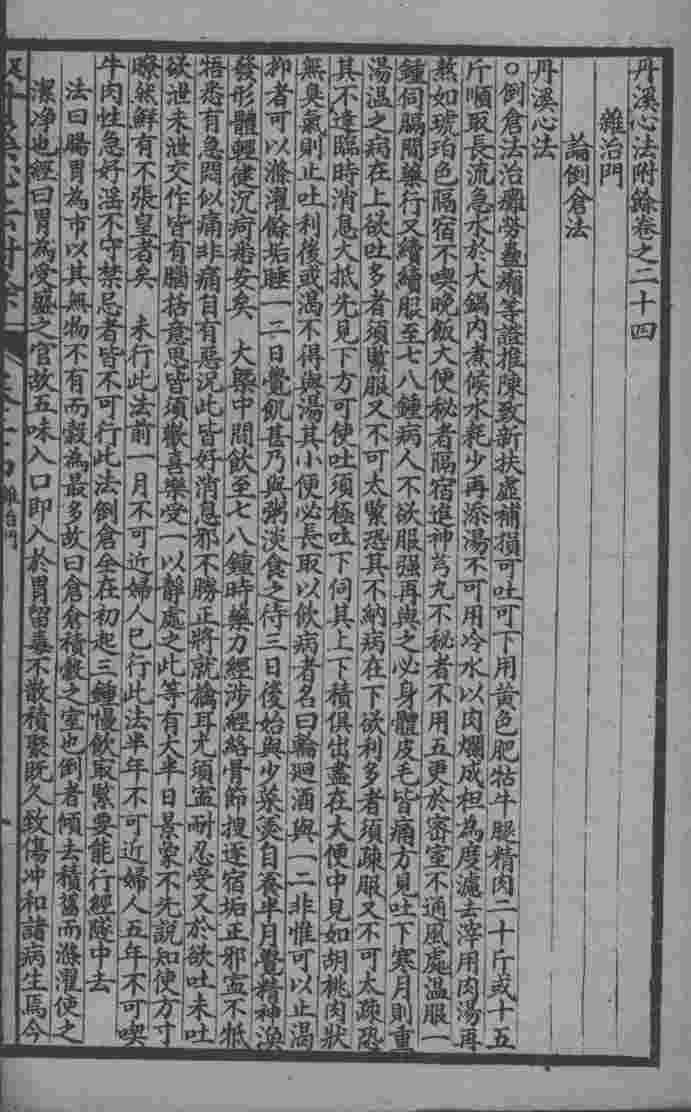 丹溪心法附餘卷之二十四
雜治門
論倒倉法
丹溪心法
○倒倉法治癱勞蠱癩等證推陳致新扶虛補損可吐可下用黃色肥牯牛腿精肉二十斤或十五
斤順取長流急水於大鍋內煮候水耗少再添湯不可用冷水以肉爛成柤為度濾去滓用肉湯再
熬如琥珀色隔宿不喫晚飯大便秘者隔宿進神芎丸不秘者不用五更於密室不通風處温服一
鍾伺膈間藥行又續續服至七八鍾病人不欲服强再與之必身體皮毛皆痛方見吐下寒月則重
湯温之病在上欲吐多者須緊服又不可太緊恐其不納病在下欲利多者須疎服又不可太疎恐
其不達臨時消息大抵先見下方可使吐須極吐下伺其上下積俱出盡在大便中見如胡桃肉狀
無臭氣則止吐利後或渴不得與湯其小便必長取以飲病者名曰輪廻酒與一二非惟可以止渴
抑者可以滌濯餘垢睡一二日覺飢甚乃與粥淡食之待三日後始與少菜羮自養半月覺精神渙
發形體輕健沉疴悉安矣　大槩中間飲至七八鍾時藥力經涉經絡骨節搜逐宿垢正邪寍不牴
牾悉有急悶似痛非痛自有惡況此皆好消息邪不勝正將就擒耳尤須寍耐忍受又於欲吐未吐
欲泄未泄交作皆有腦括意思皆須歡喜樂受一以靜處之此等有大半日景象不先說知使方寸
瞭然鮮有不張皇者矣　未行此法前一月不可近婦人已行此法半年不可近婦人五年不可喫
牛肉性急好淫不守禁忌者皆不可行此法倒倉全在初起三鍾慢飲取緊要能行經隧中去
法曰腸胃為市以其無物不有而穀為最多故曰倉倉積穀之室也倒者傾去積舊而滌濯使之
潔净也經曰胃為受盛之官故五味入口即入於胃留毒不散積聚既久致傷冲和諸病生焉今
雜治門